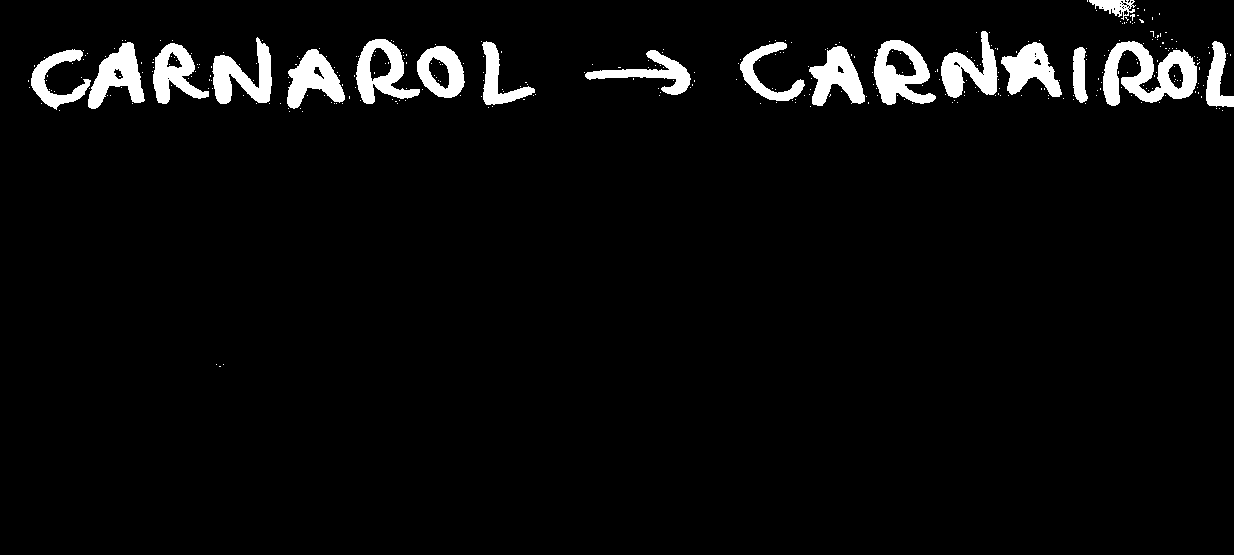 CARNAROL → CARNAIROL